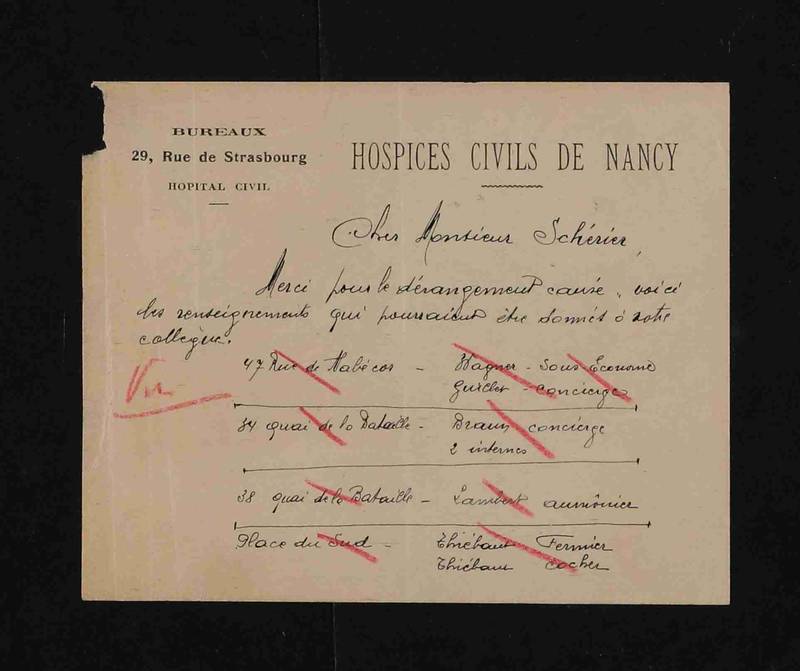 BUREAUX
29, Rue de Strasbourg
HOPITAL CIVIL
HOSPICES CIVILS DE NANCY
Cher Monsieur Schérier,
Merci pour le dérangement causé, voici
les renseignements qui pourraient être donnés à votre
collègue.
Vu
47 Rue de Nabécor - Wagner - Sous-Econome
- concierge
34 quai de la Bataille - Braun concierge
2 internes
38 quai de la Bataille - Lambert aumônier
Place du Sud - Thiébaut Fermier
Thiébaut cocher